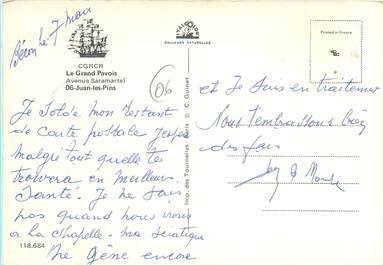 Bécon le 7 mars
CGRCR
Le Grand Pavois
Avenue Saramartel
06-Juan-les-Pins
ITALCOLOR
COULEURS NATURELLES
Printed in France
06
Je solde mon restant
de carte postale j'espère
malgré tout qu'elle te
trouvera en meilleure
santé. Je ne sais
pas quand nous irons
a la Chapelle - ma sciatique
me gêne encore
118.684
Imp. des Tournelles - Paris © C. Guinet
et Je suis en traitement
Nous t'embrassons bien
des fois